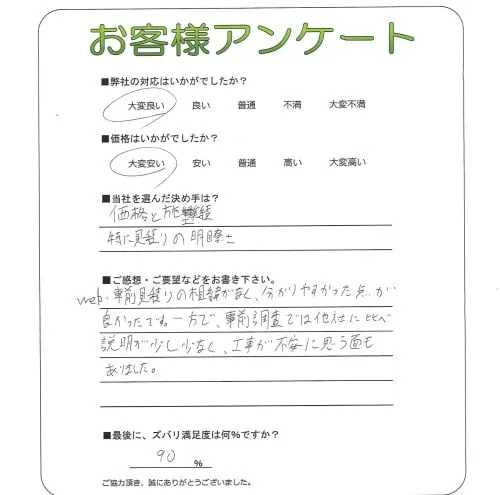 お客様アンケート
■弊社の対応はいかがでしたか?
大変良い 良い 普通 不満 大変不満
■価格はいかがでしたか?
大変安い 安い 普通 高い 大変高い
■当社を選んだ決め手は?
価格と施工実績
特に見積りの明瞭さ
■ご感想・ご要望などをお書き下さい。
web・事前見積りの相違がなく、分かりやすかった点が
良かったです。一方で、事前調査では他社に比べ
説明が少し少なく、工事が不安に思う面も
ありました。
■最後に、ズバリ満足度は何%ですか?
90 %
ご協力頂き、誠にありがとうございました。